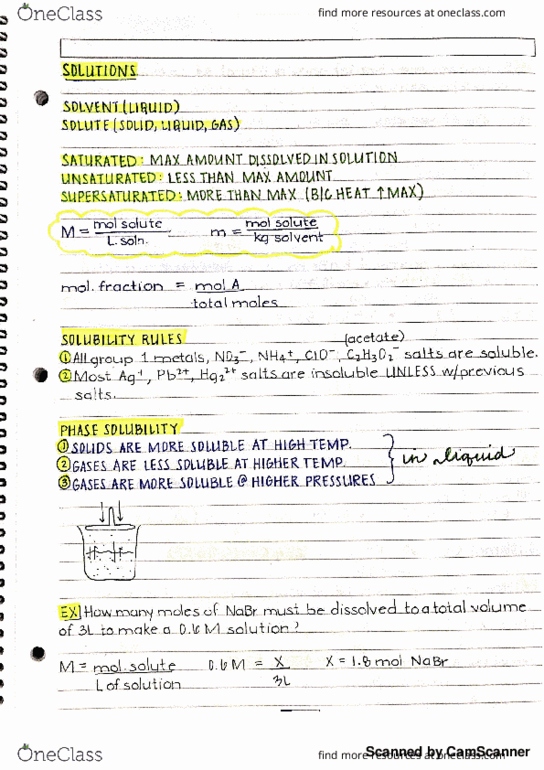 OneClass
find more resources at oneclass.com
SOLUTIONS
SOLVENT (LIQUID)
SOLUTE (SOLID, LIQUID, GAS)
SATURATED: MAX AMOUNT DISSOLVED IN SOLUTION
UNSATURATED: LESS THAN MAX AMOUNT
SUPERSATURATED: MORE THAN MAX (B/C HEAT ↑ MAX)
M = mol solute / L soln. m = mol solute / kg solvent
mol. fraction = mol A / total moles
SOLUBILITY RULES (acetate)
① All group 1 metals, NO₃⁻, NH₄⁺, ClO⁻, C₂H₃O₂⁻ salts are soluble.
② Most Ag⁺, Pb²⁺, Hg₂²⁺ salts are insoluble UNLESS w/previous
salts.
PHASE SOLUBILITY
① SOLIDS ARE MORE SOLUBLE AT HIGH TEMP.
② GASES ARE LESS SOLUBLE AT HIGHER TEMP.
③ GASES ARE MORE SOLUBLE @ HIGHER PRESSURES
in liquid
EX How many moles of NaBr must be dissolved to a total volume
of 3L to make a 0.6 M solution?
M = mol. solute / L of solution 0.6 M = X / 3L X = 1.8 mol NaBr
OneClass
find more resources at oneclass.com
Scanned by CamScanner